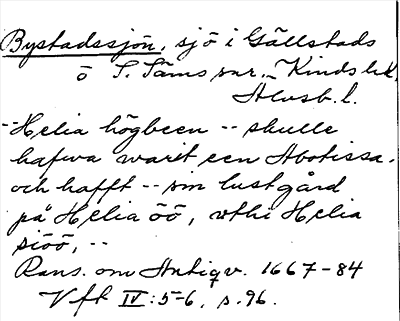 Bystadssjön, sjö i Gällstads
o S. Säms snr. Kinds hd.
Älvsb. l.
-- Helia högbeen -- skulle
hafwa warit een Abotissa.
och hafft -- sin lustgård
på Helia öö, vthi Helia
siöö, --
Rans. om Antiqv. 1667-84
Vft IV:5-6, s. 96.